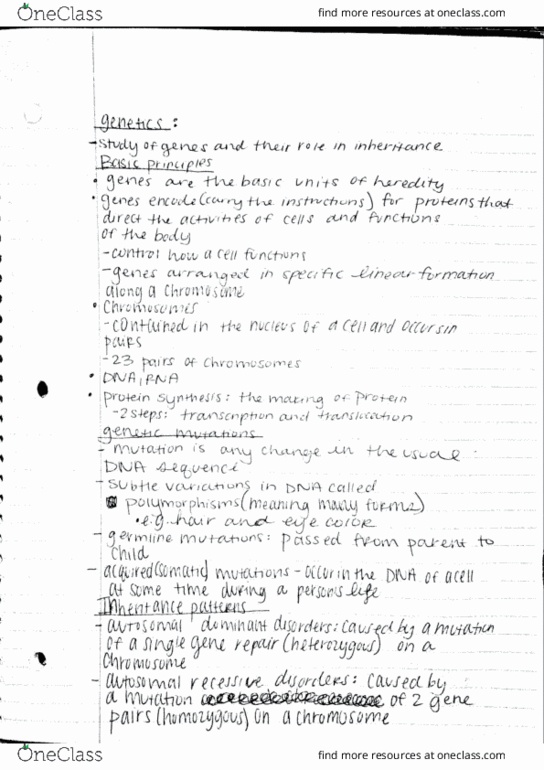 OneClass find more resources at oneclass.com
genetics:
- study of genes and their role in inheritance
Basic principles
• genes are the basic units of heredity
• genes encode (carry the instructions) for proteins that
direct the activities of cells and functions
of the body
- control how a cell functions
- genes arranged in specific linear formation
along a chromosome
• Chromosomes
- contained in the nucleus of a cell and occurs in
pairs
- 23 pairs of chromosomes
• DNA, RNA
• protein synthesis: the making of protein
- 2 steps: transcription and
genetic mutations
- mutation is any change in the usual
DNA sequence
- subtle variations in DNA called
polymorphisms (meaning many forms)
• e.g. hair and eye color
- germline mutations: passed from parent to
child
- acquired (somatic) mutations - occur in the DNA of a cell
at some time during a persons life
Inheritance patterns
- autosomal dominant disorders: caused by a mutation
of a single gene repair (heterozygous) on a
chromosome
- autosomal recessive disorders: caused by
a mutation of 2 gene
pairs (homozygous) on a chromosome
OneClass find more resources at oneclass.com